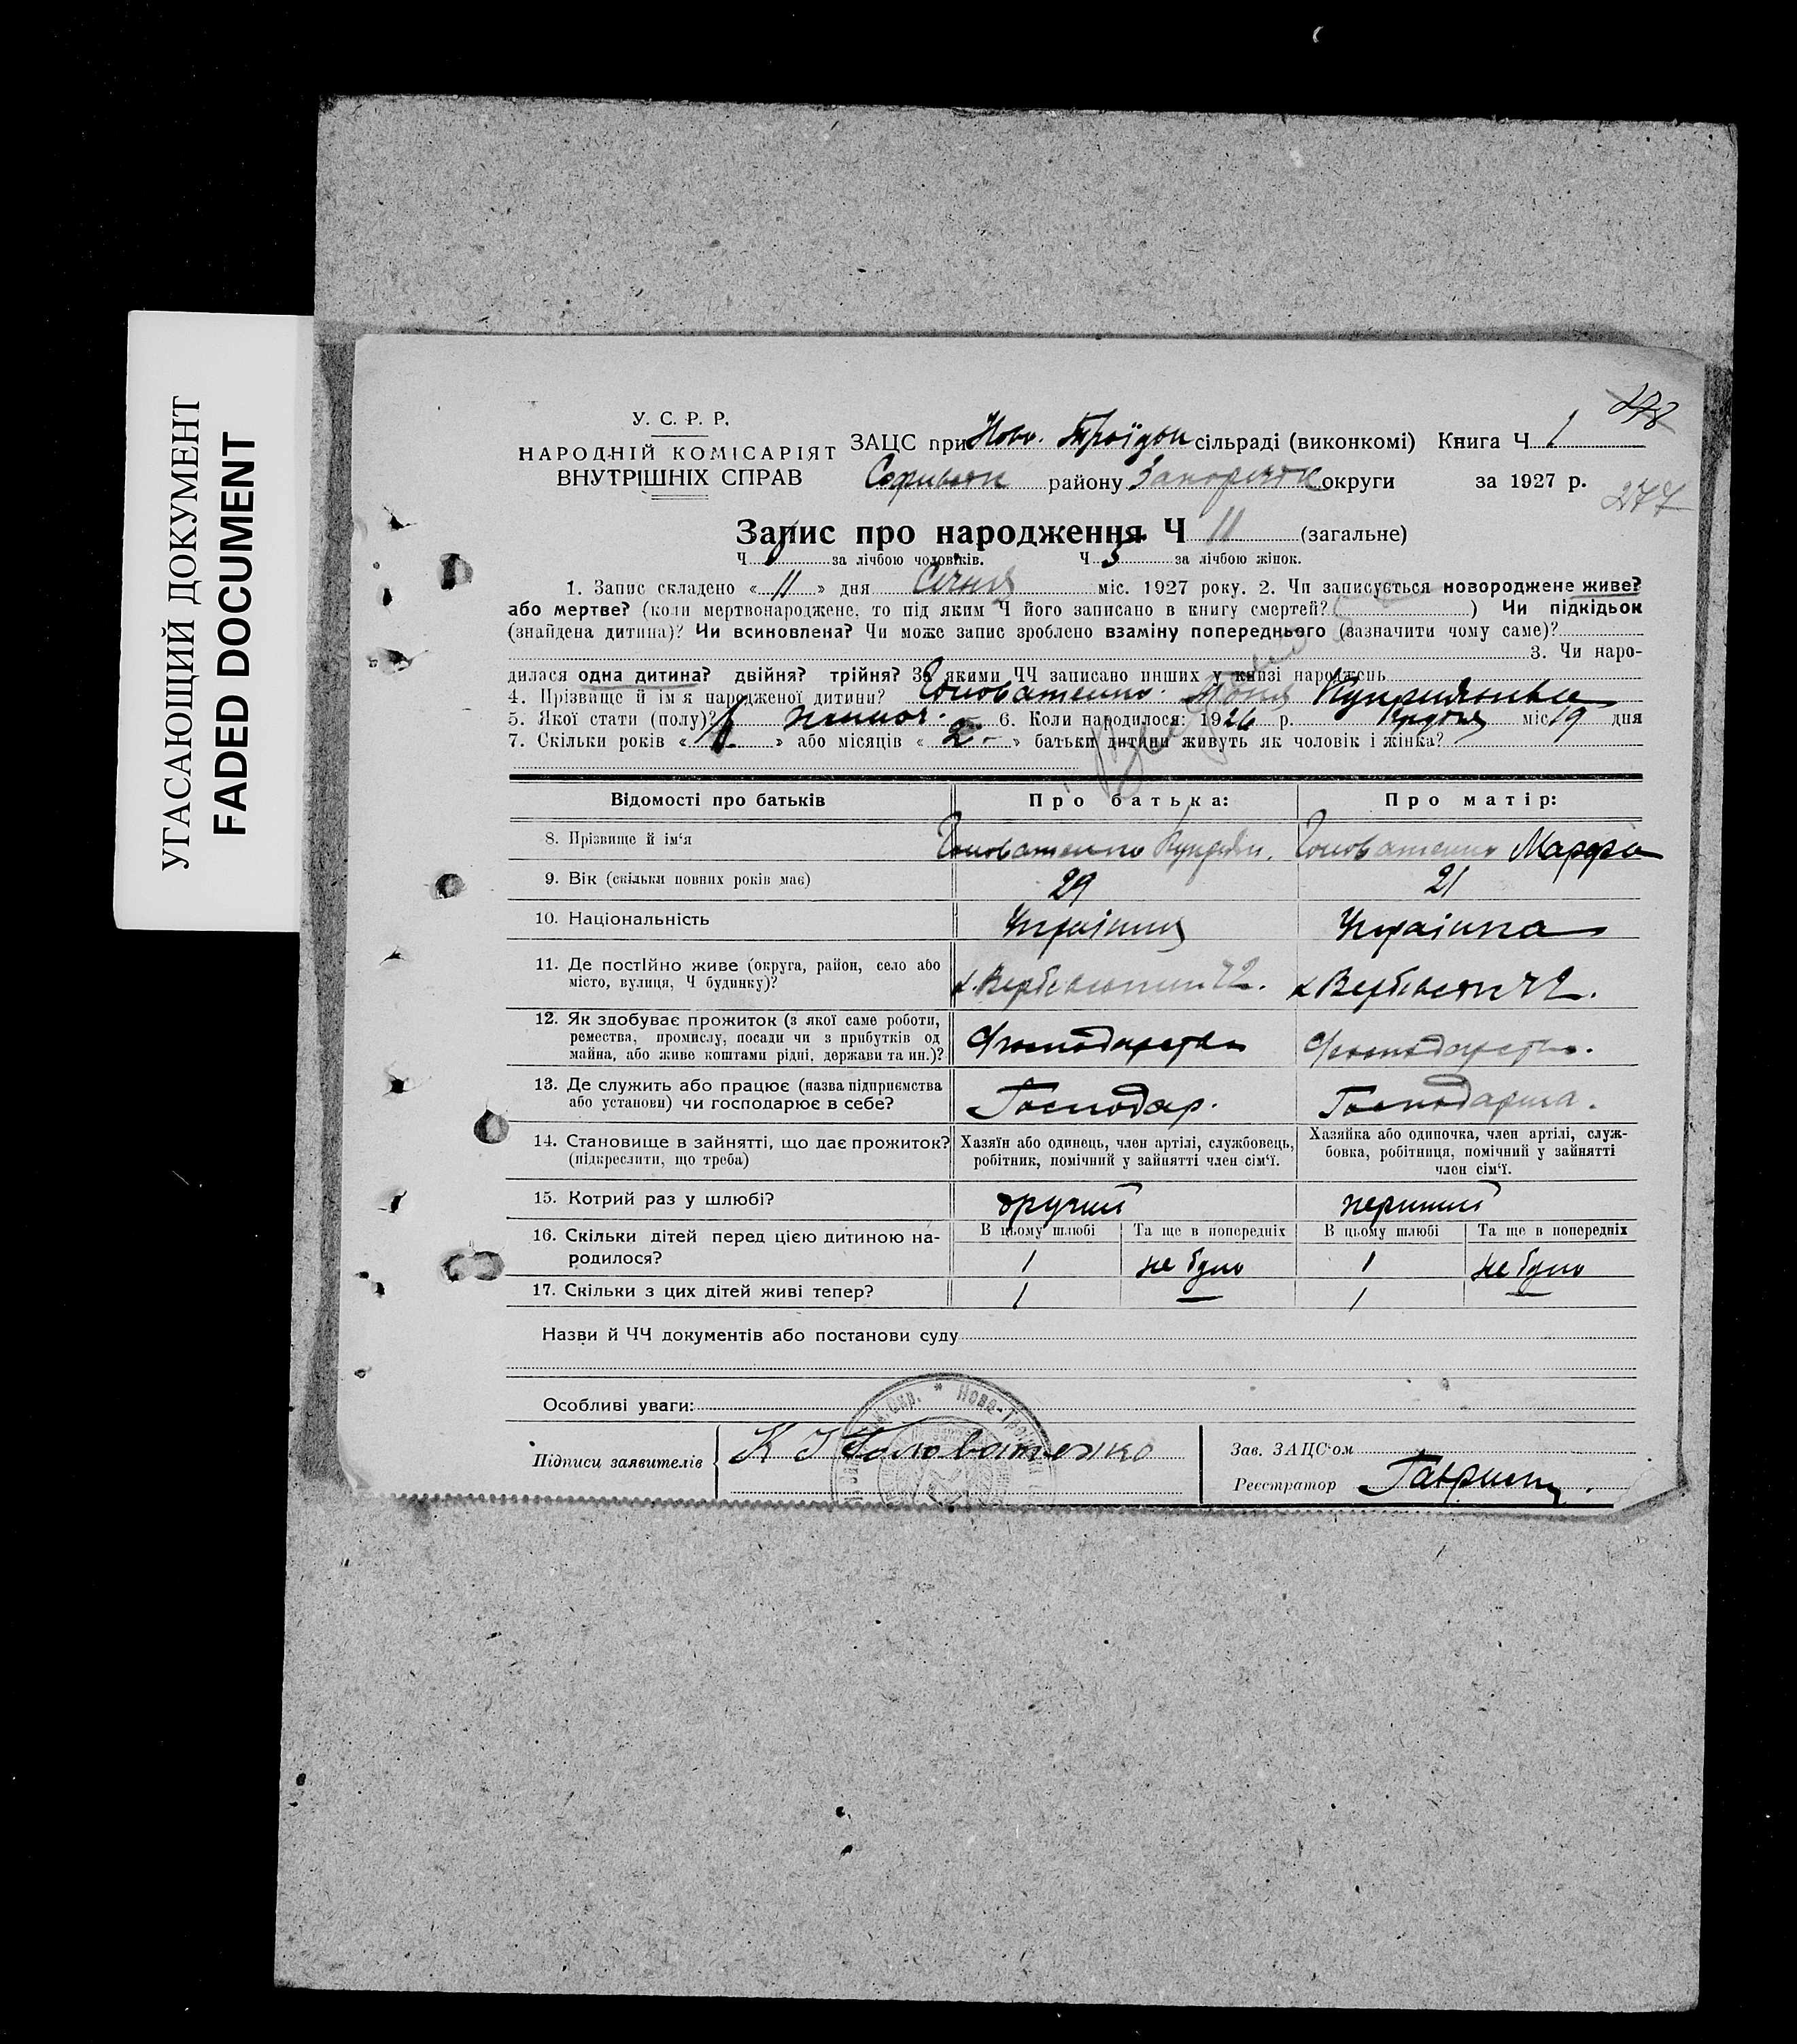 УГАСАЮЩИЙ ДОКУМЕНТ
FADED DOCUMENT
278
У. С. Р. Р.
НАРОДНІЙ КОМІСАРІЯТ
ВНУТРІШНІХ СПРАВ
ЗАЦС при Ново. Троїцьк сільраді (виконкомі) Книга Ч 1
Софиївськ району Запоріжск округи за 1927 р.
277
Запис про народження Ч 11 (загальне)
Ч за лічбою чоловіків. Ч 5 за лічбою жінок.
1. Запис складено « 11 » дня Січня міс. 1927 року. 2. Чи записується новороджене живе?
або мертве? (коли мертвонароджене, то під яким Ч його записано в книгу смертей? ) Чи підкідьок
(знайдена дитина)? Чи всиновлена? Чи може запис зроблено взаміну попереднього (зазначити чому саме)?
3. Чи наро-
дилася одна дитина? двійня? трійня? За якими ЧЧ записано инших у книзі народжень
4. Прізвище й ім'я народженої дитини? Головатенко Куприяновна
5. Якої стати (полу)? жіноч. 6. Коли народилося: 1926 р. Грудня міс 19 дня
7. Скільки років « 1 » або місяців « 2 » батьки дитини живуть як чоловік і жінка?
Відомості про батьків Про батька: Про матір:
8. Прізвище й ім'я Головатенко Куприян. Головатенко Марфа
9. Вік (скільки повних років має) 29 21
10. Національність Українець Українка
11. Де постійно живе (округа, район, село або
місто, вулиця, Ч будинку)?
12. Як здобуває прожиток (з якої саме роботи,
ремества, промислу, посади чи з прибутків од
майна, або живе коштами рідні, держави та ин.)?
13. Де служить або працює (назва підприємства
або установи) чи господарює в себе? Господар. Господарка.
14. Становище в зайнятті, що дає прожиток?
(підкреслити, що треба)
Хазяїн або одинець, член артілі, службовець,
робітник, помічний у зайнятті член сім'ї.
Хазяйка або одиночка, член артілі, служ-
бовка, робітниця, помічний у зайнятті
член сім'ї.
15. Котрий раз у шлюбі? другий перший
16. Скільки дітей перед цією дитиною на-
родилося?
В цьому шлюбі Та ще в попередніх В цьому шлюбі Та ще в попередніх
1 не було 1 не було
17. Скільки з цих дітей живі тепер? 1 — 1 —
Назви й ЧЧ документів або постанови суду
Особливі уваги:
Підписи заявителів К Головатенко
Зав. ЗАЦС'ом
Реєстратор Гаврись